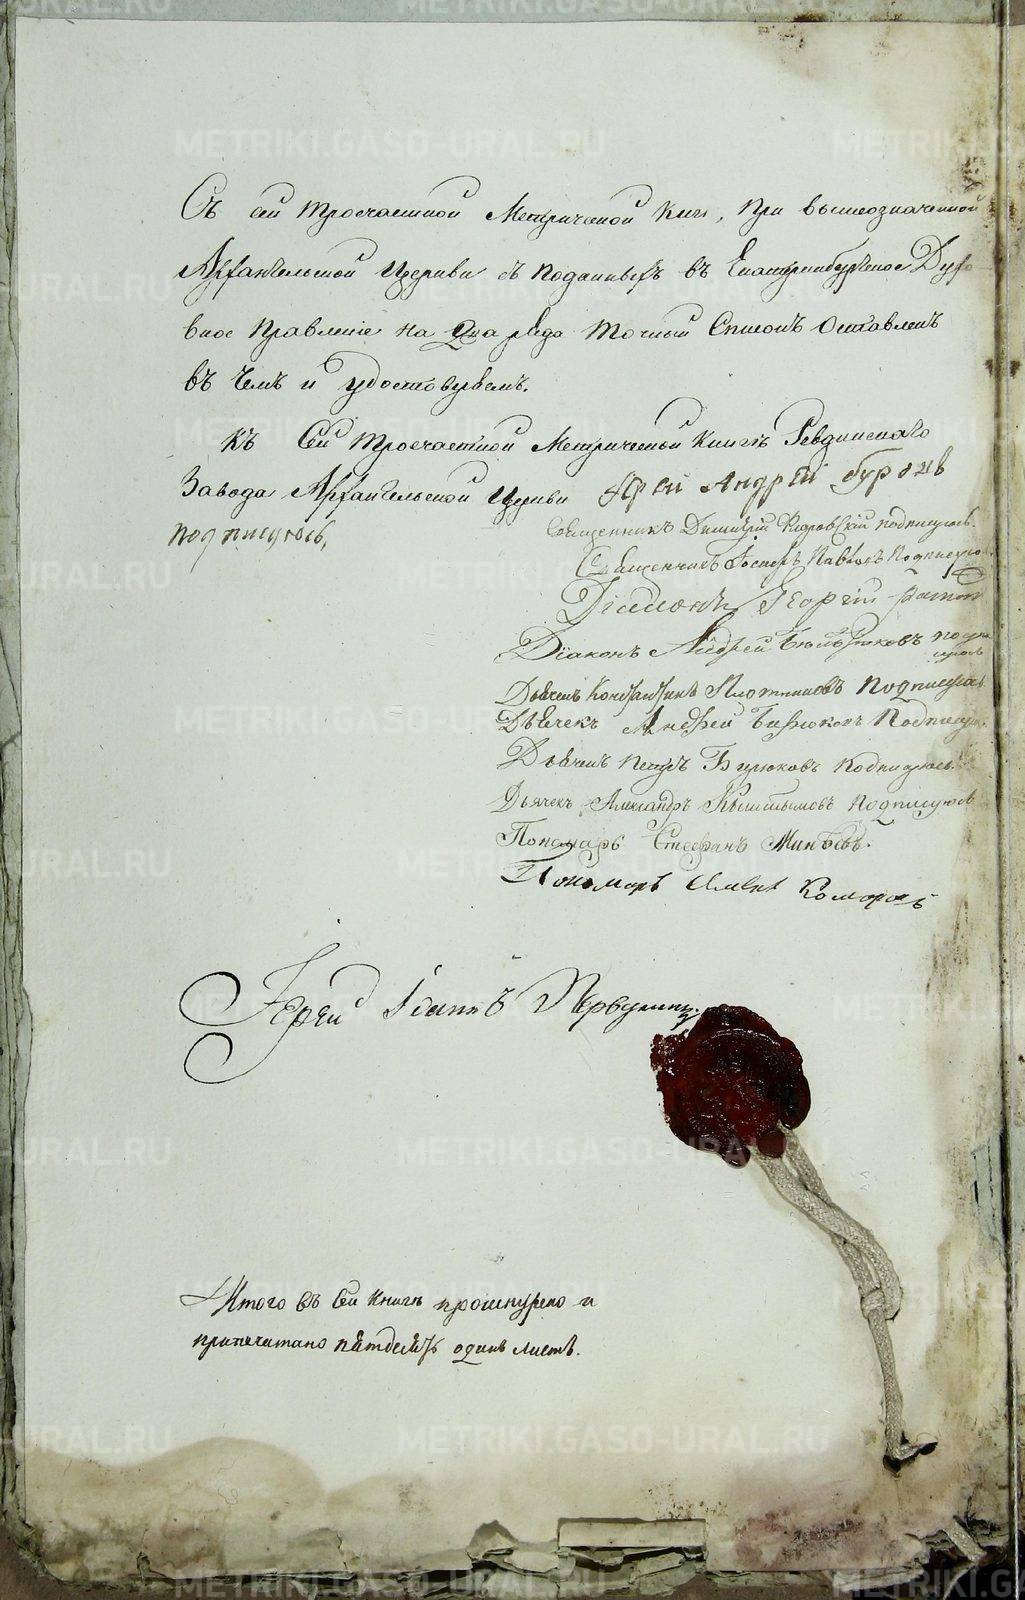 Съ сей троечастной Метрической книги, при вышеозначенной
Архангельской Церкви съ поданныхъ въ Екатеринбургское Духо-
вное Правление на два ряда точный Список Оставленъ
въ чемъ и удостовѣряемъ.
Къ Сей троечастной Метрической Книгѣ Ревдинскаго
Завода Архангельской Церкви Iерей Андрей
подписуюсь,
Священникъ Димитрий подписуюсь.
Священникъ Павловъ Подписую
Дiаконъ Георгiй
Дiаконъ Андрей подпи
суюсь
Дьячекъ Константинъ Плотниковъ Подписуюсь
Дьячекъ Андрей Бирюковъ Подписую
Дьячекъ Петръ Бирюковъ подписуюсь.
Дьячекъ Александръ Кыштымовъ подписуюсь
Пономарь Стефанъ Минѣевъ.
Пономарь Комаровъ
Iерей Iоаннъ Первушинъ
Итого въ сей книгѣ прошнурено и
припечатано пятдесятъ одинъ листъ.
METRIKI.GASO-URAL.RU